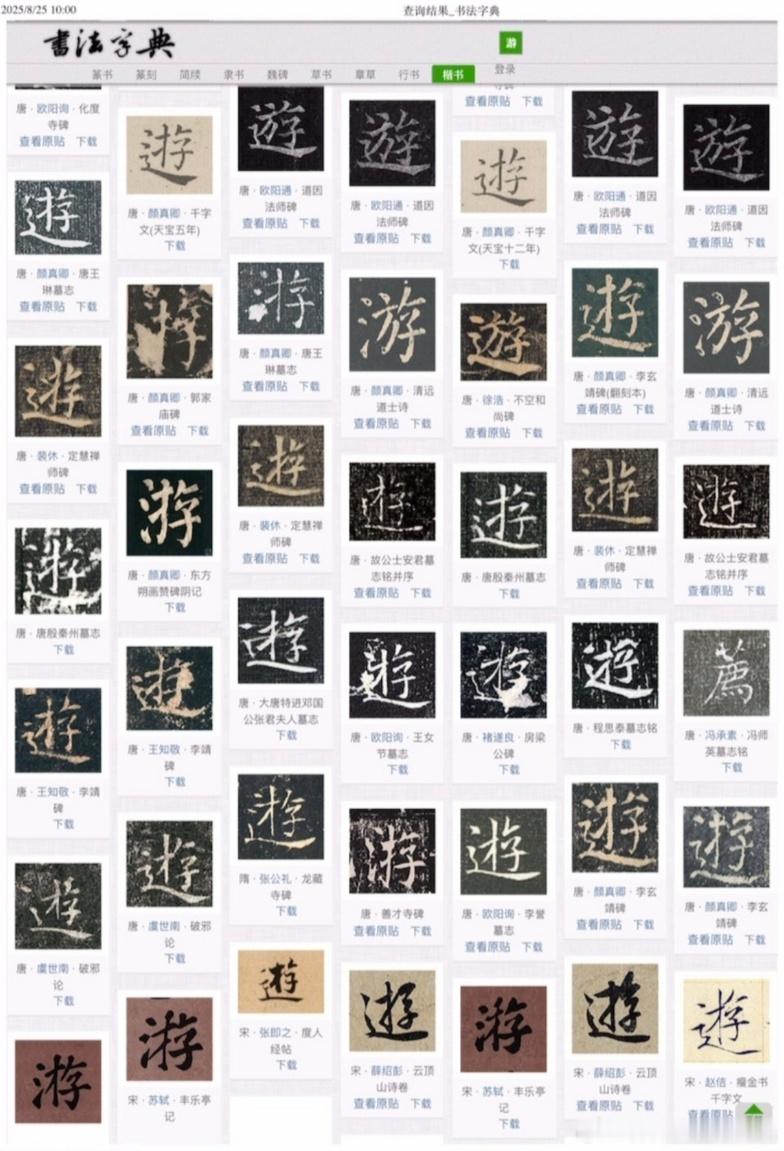 2025/8/25 10:00
查询结果_书法字典
書法字典
游
篆书 篆刻 简牍 隶书 魏碑 草书 章草 行书 楷书 登录
唐·欧阳询·化度
寺碑
查看原贴 下载
遊
唐·颜真卿·唐王
琳墓志
查看原贴 下载
遊
唐·裴休·定慧禅
师碑
查看原贴 下载
唐·唐殷秦州墓志
下载
遊
唐·王知敬·李靖
碑
下载
遊
唐·虞世南·破邪
论
下载
游
遊
唐·颜真卿·千字
文(天宝五年)
下载
唐·颜真卿·郭家
庙碑
查看原贴 下载
游
唐·颜真卿·东方
朔画赞碑阴记
下载
遊
唐·王知敬·李靖
碑
下载
遊
唐·虞世南·破邪
论
下载
游
宋·苏轼·丰乐亭
记
遊
唐·欧阳通·道因
法师碑
查看原贴 下载
游
唐·颜真卿·唐王
琳墓志
查看原贴 下载
遊
唐·裴休·定慧禅
师碑
查看原贴 下载
遊
唐·大唐特进邓国
公张君夫人墓志
下载
遊
隋·张公礼·龙藏
寺碑
下载
遊
宋·张即之·度人
经帖
下载
遊
唐·欧阳通·道因
法师碑
查看原贴 下载
游
唐·颜真卿·清远
道士诗
查看原贴 下载
遊
唐·故公士安君墓
志铭并序
查看原贴 下载
遊
唐·欧阳询·王女
节墓志
下载
游
唐·善才寺碑
查看原贴 下载
遊
宋·薛绍彭·云顶
山诗卷
查看原贴 下载
查看原贴 下载
遊
唐·颜真卿·千字
文(天宝十二年)
下载
遊
唐·徐浩·不空和
尚碑
查看原贴 下载
遊
唐·唐殷秦州墓志
下载
遊
唐·褚遂良·房梁
公碑
下载
遊
唐·欧阳询·李誉
墓志
查看原贴 下载
游
宋·苏轼·丰乐亭
记
下载
遊
唐·欧阳通·道因
法师碑
查看原贴 下载
遊
唐·颜真卿·李玄
靖碑(翻刻本)
查看原贴 下载
遊
唐·裴休·定慧禅
师碑
查看原贴 下载
遊
唐·程思泰墓志铭
下载
遊
唐·颜真卿·李玄
靖碑
查看原贴 下载
遊
宋·薛绍彭·云顶
山诗卷
查看原贴 下载
遊
唐·欧阳通·道因
法师碑
查看原贴 下载
游
唐·颜真卿·清远
道士诗
查看原贴 下载
遊
唐·故公士安君墓
志铭并序
查看原贴 下载
唐·冯承素·冯师
英墓志铭
下载
遊
唐·颜真卿·李玄
靖碑
查看原贴 下载
遊
宋·赵佶·瘦金书
千字文
查看原贴